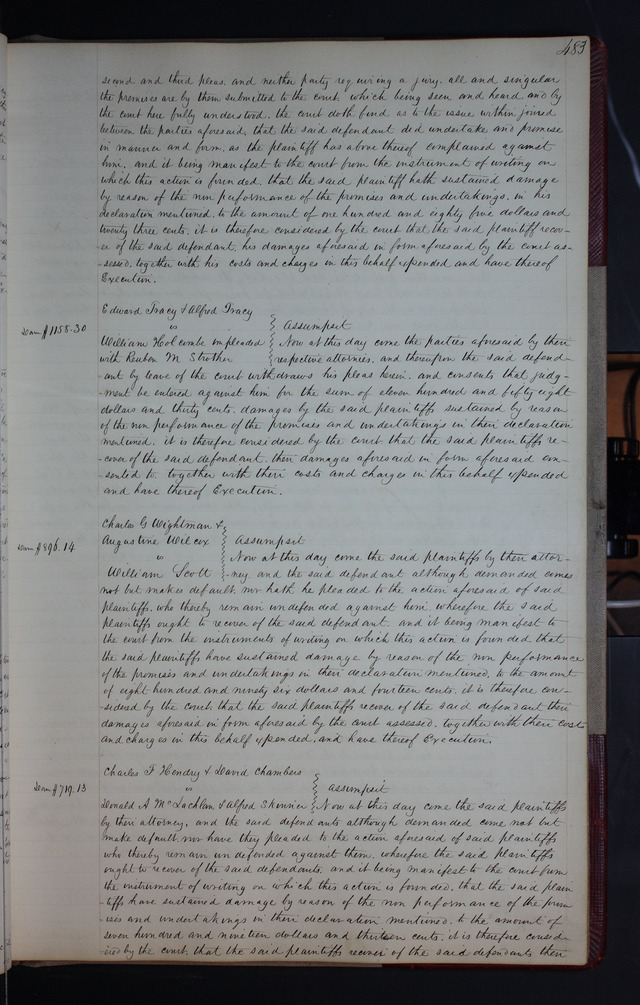 483
second and third pleas, and neither party requiring a jury, all and singular
the premises are by them submitted to the court which being seen and heard and by
the court here fully understood, the court doth find as to the issue within joined
between the parties aforesaid, that the said defendant did undertake and promise
in manner and form, as the plaintiff has above thereof complained against
him, and it being manifest to the court from the instrument of writing on
which this action is founded, that the said plaintiff hath sustained damage
by reason of the non performance of the promises and undertakings, in his
declaration mentioned, to the amount of one hundred and eighty five dollars and
twenty three cents, it is therefore considered by the court that the said plaintiff recov-
-er of the said defendant, his damages aforesaid in form aforesaid by the court as-
-sessed, together with his costs and charges in this behalf expended and have thereof
Execution.
Edward Tracy & Alfred Tracy
Dam $1158.30
vs
Assumpsit
William Holcombe impleaded
Now at this day come the parties aforesaid by their
with Reuben M Strother
respective attornies, and thereupon the said defend-
-ant by leave of the court withdraws his pleas herein, and consents that judg-
-ment be entered against him for the sum of eleven hundred and fifty eight
dollars and thirty cents, damages by the said plaintiffs sustained by reason
of the non performance of the promises and undertakings in their declaration
mentioned, it is therefore considered by the court that the said plaintiffs re-
-cover of the said defendant, their damages aforesaid in form aforesaid con-
-sented to, together with their costs and charges in this behalf expended
and have thereof Execution.
Charles G Wightman &
Dam $896.14
Augustine Wilcox
Assumpsit
vs
Now at this day come the said plaintiffs by their attor-
William Scott
-ney and the said defendant although demanded comes
not but makes default, nor hath he pleaded to the action aforesaid of said
plaintiffs, who thereby remain undefended against him, wherefore the said
plaintiffs ought to recover of the said defendant, and it being manifest to
the court from the instruments of writing on which this action is founded that
the said plaintiffs have sustained damage by reason of the non performance
of the promises and undertakings in their declaration mentioned, to the amount
of eight hundred and ninety six dollars and fourteen cents, it is therefore con-
-sidered by the court that the said plaintiffs recover of the said defendant their
damages aforesaid in form aforesaid by the court assessed, together with their costs
and charges in this behalf expended, and have thereof Execution.
Charles F Hendry & David Chambers
Dam $719.13
vs
Assumpsit
Donald A McLachlan & Alfred
Now at this day come the said plaintiffs
by their attorney, and the said defendants although demanded come not but
make default, nor have they pleaded to the action aforesaid of said plaintiffs
who thereby remain undefended against them, wherefore the said plaintiffs
ought to recover of the said defendants, and it being manifest to the court from
the instrument of writing on which this action is founded, that the said plain-
-tiffs have sustained damage by reason of the non performance of the prom-
-ises and undertakings in their declaration mentioned, to the amount of
seven hundred and nineteen dollars and thirteen cents, it is therefore consid-
-ered by the court, that the said plaintiffs recover of the said defendants their